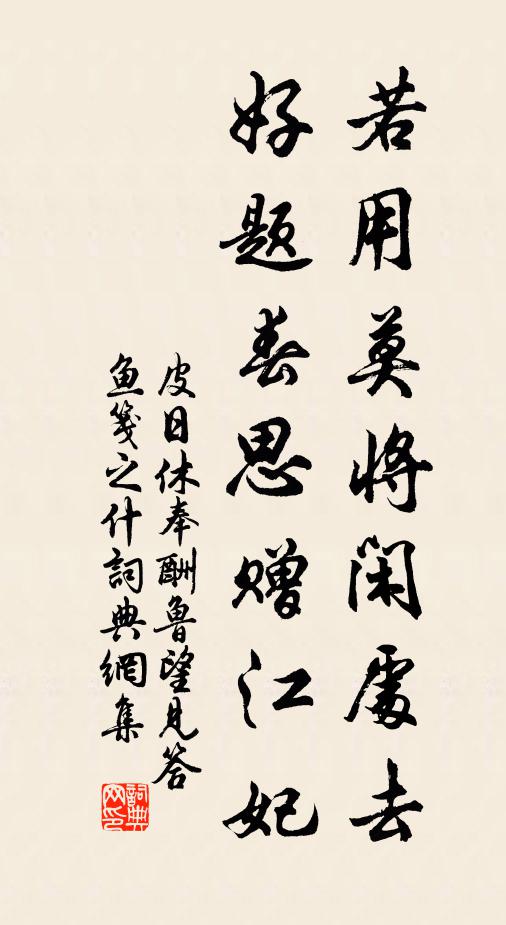 若用莫将闲處去
好题春思赠江妃
皮日休奉酬魯望見答
魚箋之什詞典網集
詞典网印